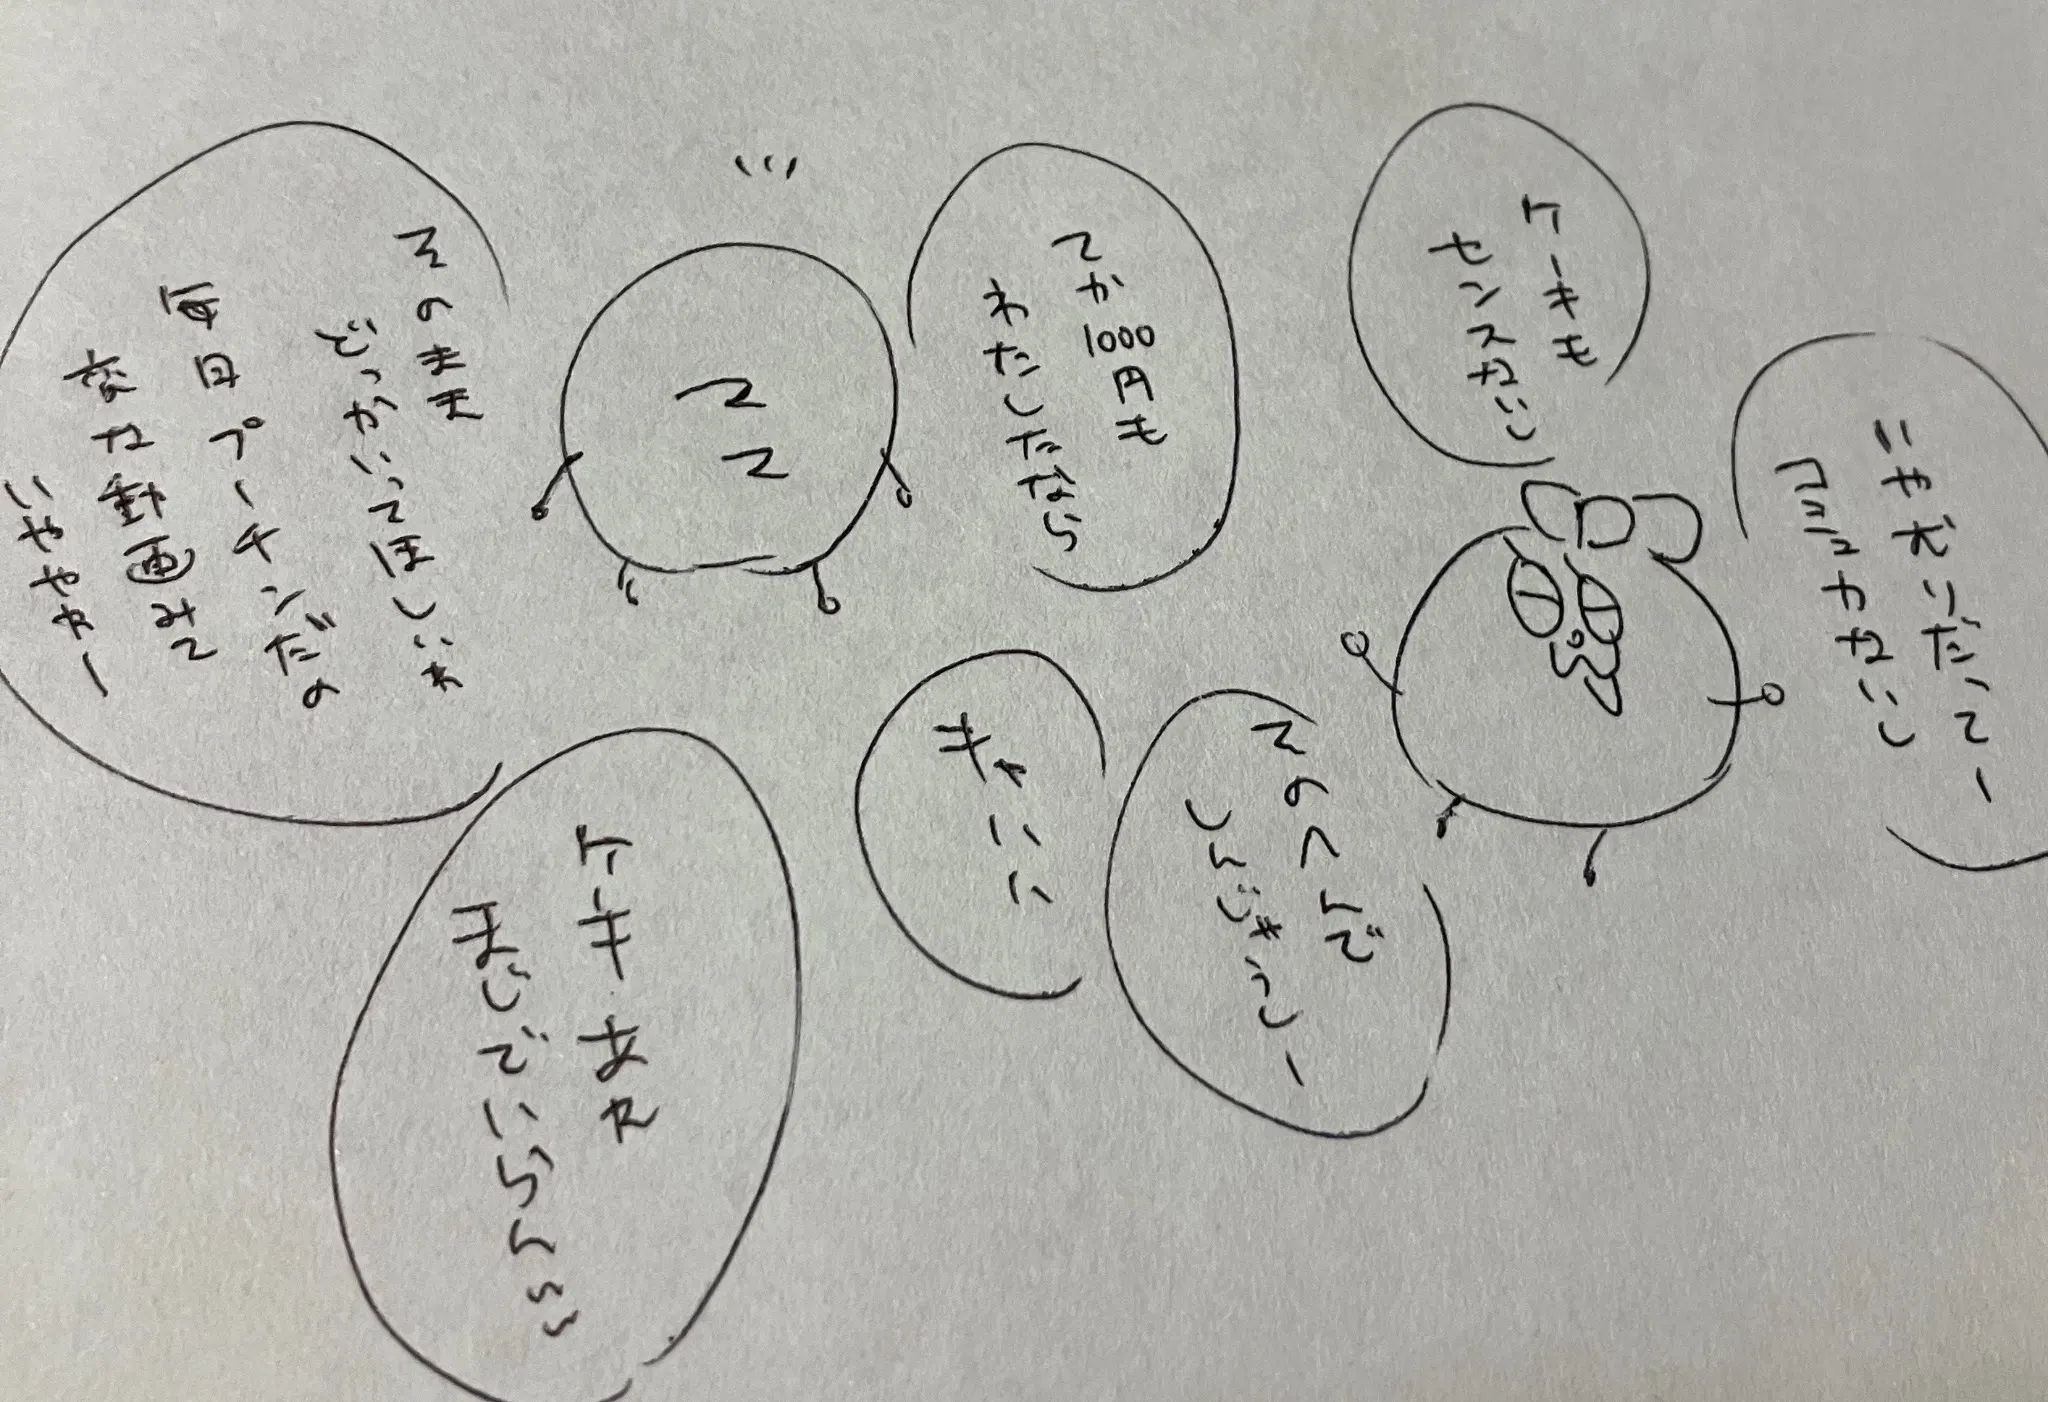 ケーキも
センスないし
てか1000円も
わたしたなら
そのまま
どっかいってほしいわ
毎日プーチンだの
変な動画みて
いややわー
そのへんで
しんじゃうしー
キャハハ
ケーキあれ
まじでいらん